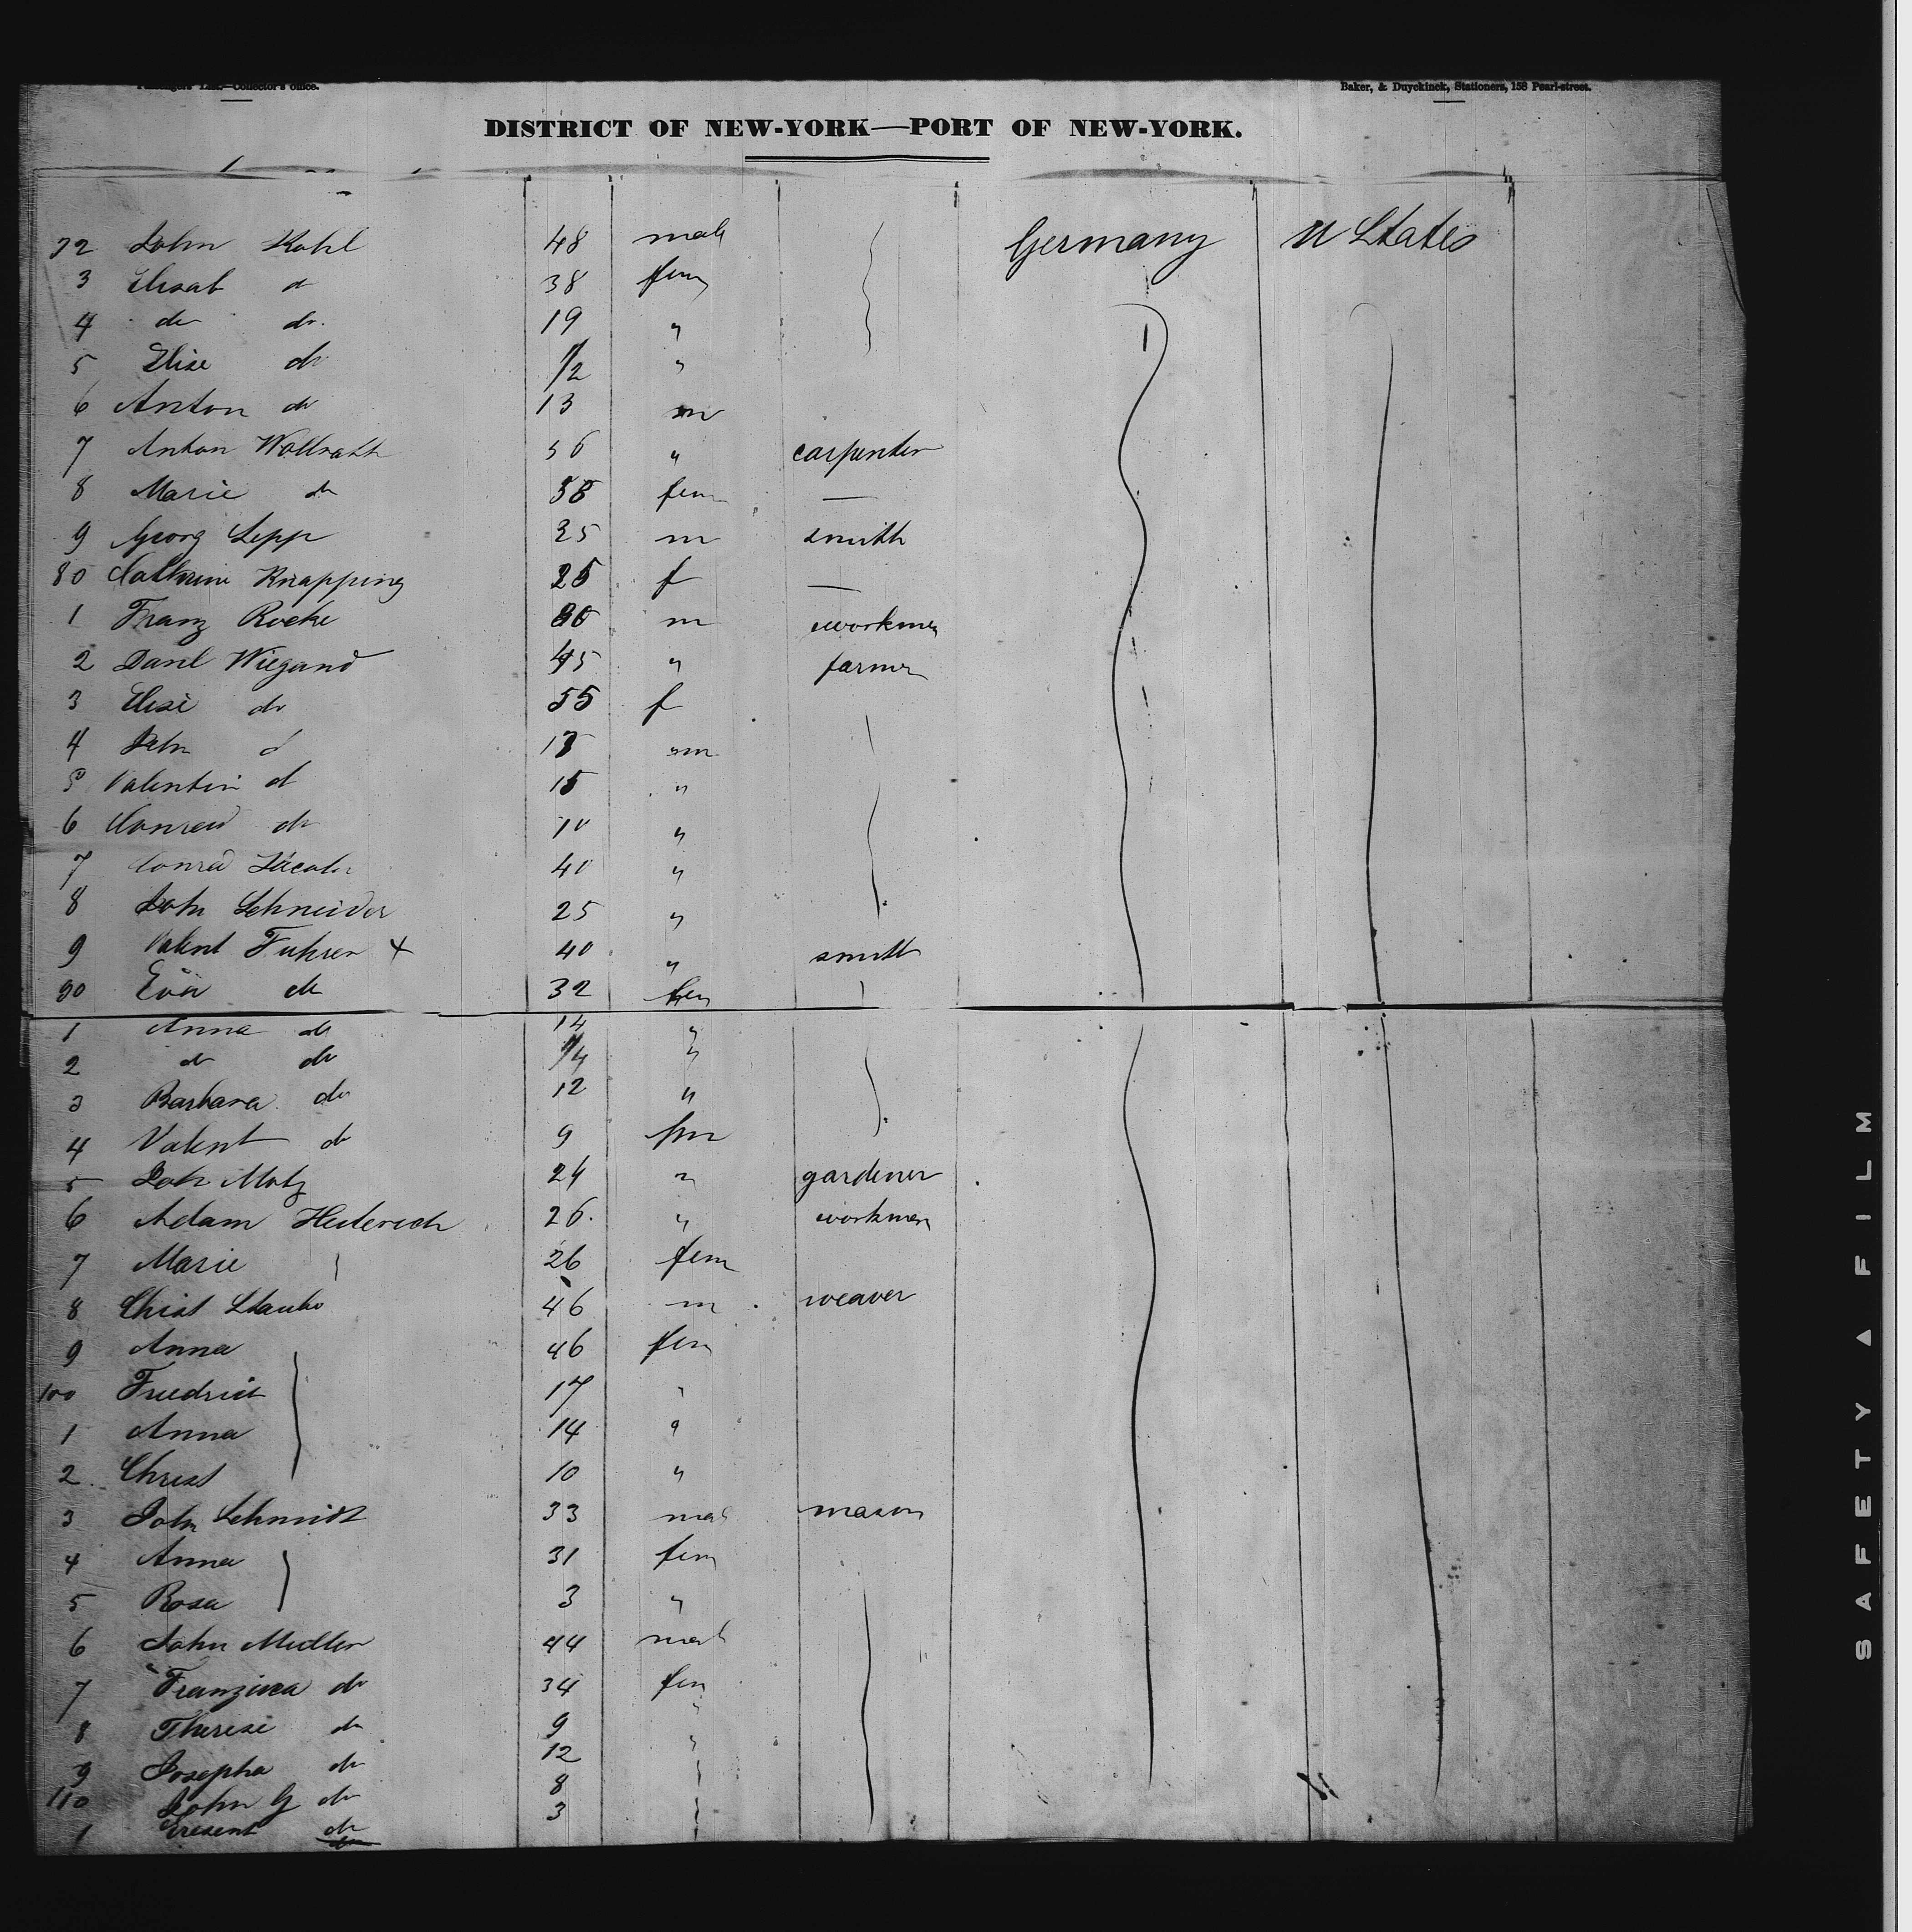 Passengers' List.—Collector's office.
Baker, & Duyckinck, Stationers, 158 Pearl-street.
DISTRICT OF NEW-YORK—PORT OF NEW-YORK.
72 John Kohl 48 male Germany U States
3 Elisab do 38 fem
4 do do. 19 "
5 Elise do 1/2 "
6 Anton do 13 m
7 Anton Wollrath 56 " carpenter
8 Marie do 38 fem —
9 Georg Lepp 35 m smith
80 Cathrine Knapping 25 f —
1 Franz Rocke m workmen
2 Danl Wiegand 45 " farmer
3 Elise do 55 f
4 John d m
5 Valentin d 15 "
6 Conrad do 10 "
7 Conrad Jacob 40 "
8 Joh Schneider 25 "
9 Valent Fuhrer x 40 " smith
90 Eva do 32 fem
1 Anna do 14 "
2 do do 1/4 "
3 Barbara do 12 "
4 Valent do 9
5 Joh Motz 24 " gardener
6 Adam Heiderich 26. " workmen
7 Marie 26 fem
8 Christ Staubo 46 m weaver
9 Anna 46 fem
100 Friedrich 17 "
1 Anna 14 "
2 Christ 10 "
3 John Schmidt 33 mal mason
4 Anna 31 fem
5 Rosa 3 "
6 John Muller 44 mal
7 Franzisca do 34 fem
8 Therese do 9 "
9 Josepha do 12 "
110 John G do 8
1 do 3
SAFETY A FILM